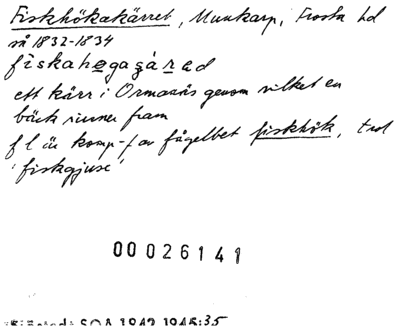 Fiskhökakärret, Munkarp, Frosta hd
så 1832-1834
fiskahøgagárad
ett kärr i Ormanäs genom vilket en
bäck rinner fram
f l är komp-f av fågelbet fiskhök, trol
'fiskgjuse'
00026141
SOA 1942 1945:35